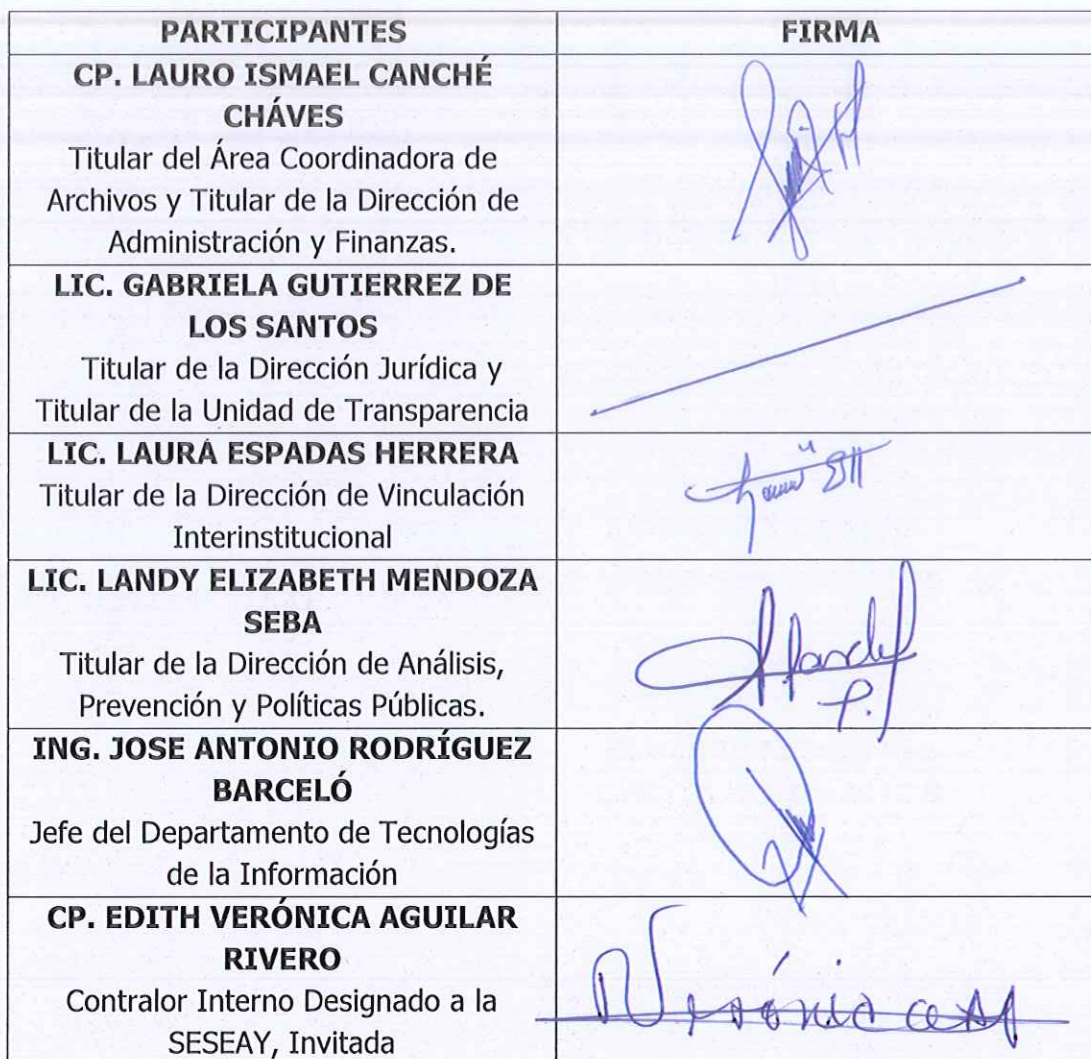 PARTICIPANTES FIRMA
CP. LAURO ISMAEL CANCHÉ
CHÁVES
Titular del Área Coordinadora de
Archivos y Titular de la Dirección de
Administración y Finanzas.
LIC. GABRIELA GUTIERREZ DE
LOS SANTOS
Titular de la Dirección Jurídica y
Titular de la Unidad de Transparencia
LIC. LAURA ESPADAS HERRERA
Titular de la Dirección de Vinculación
Interinstitucional
LIC. LANDY ELIZABETH MENDOZA
SEBA
Titular de la Dirección de Análisis,
Prevención y Políticas Públicas.
ING. JOSE ANTONIO RODRÍGUEZ
BARCELÓ
Jefe del Departamento de Tecnologías
de la Información
CP. EDITH VERÓNICA AGUILAR
RIVERO
Contralor Interno Designado a la
SESEAY, Invitada